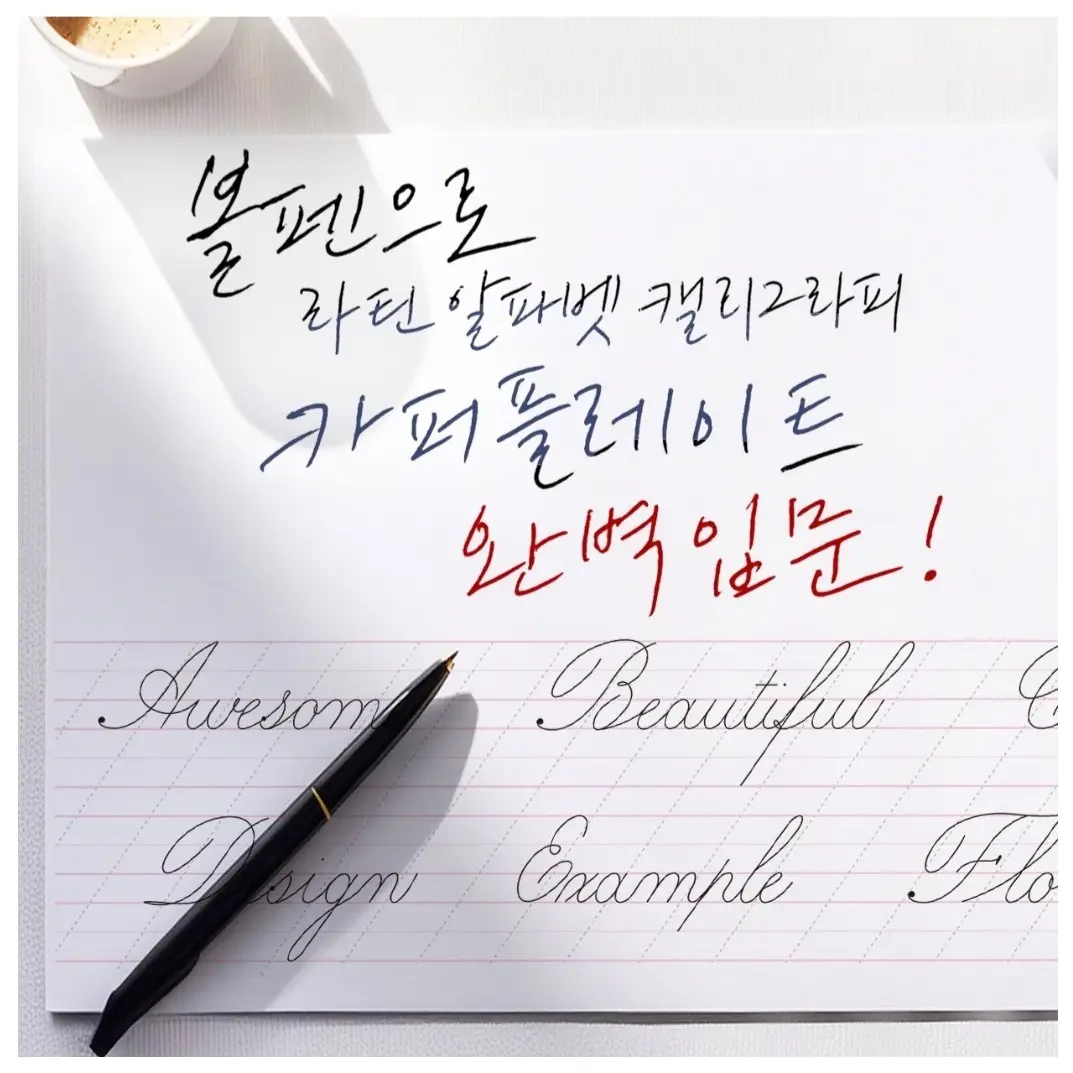 볼펜으로
라틴 알파벳 캘리그라피
카퍼플레이트
완벽 입문!
Awesom Beautiful C
Design Example Flo